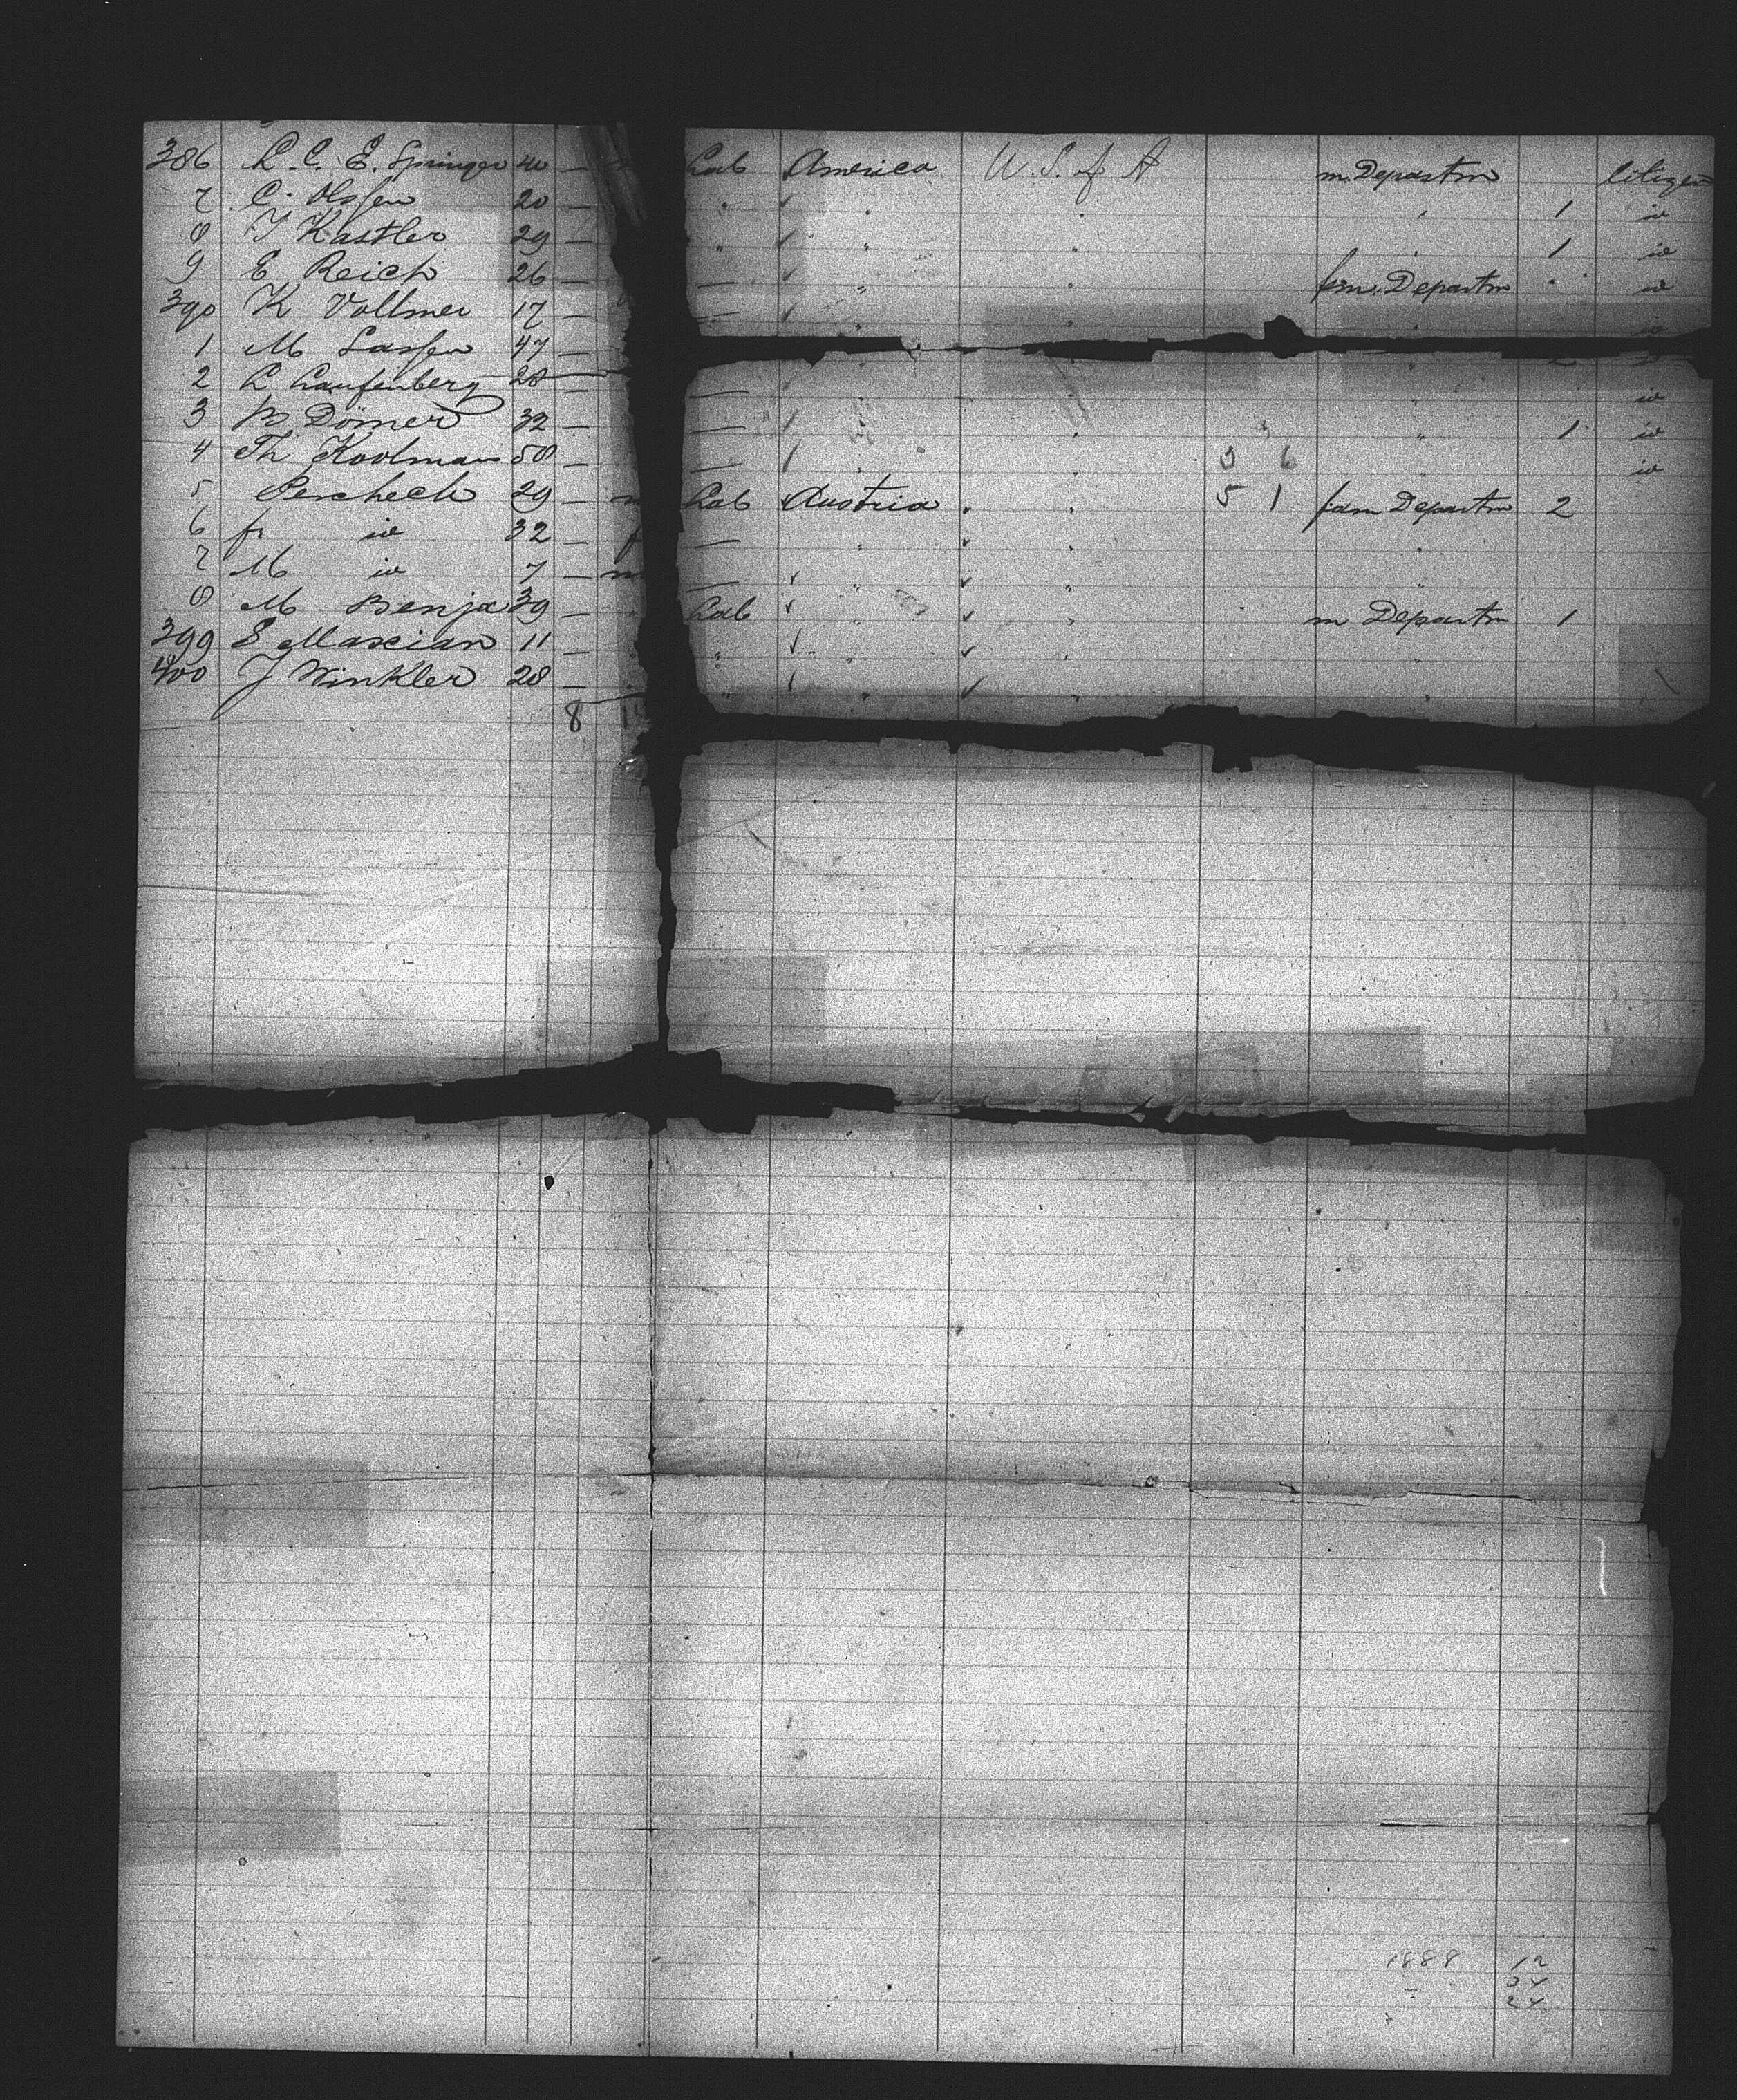 386 L. C. E. Springer 40 — Lab America U. S. of A m. Departm Citizen
7 C. Olssen 20 — " " " " 1 io
8 J Kastler 29 — " " " " 1 io
9 E Reich 26 — — " " fam. Departm " io
390 K Vollmer 17 — — " " " io
1 M Lassen 47 —
2 L Laufenberg 28 — — " " " io
3 B. Dömer 32 — — " " " 1 io
4 Th Koolman 50 — — " " 5 6 " io
5 Perchech 29 — m Lab Austria " 5 1 fam Departm 2
6 fr io 32 — f — " " "
7 M io 7 — m — " " "
8 M Benja 39 — Lab " " m Departm 1
399 E Maxian 11 — " " " "
400 J Winkler 28 — " " " "
8
1888 12
34
24